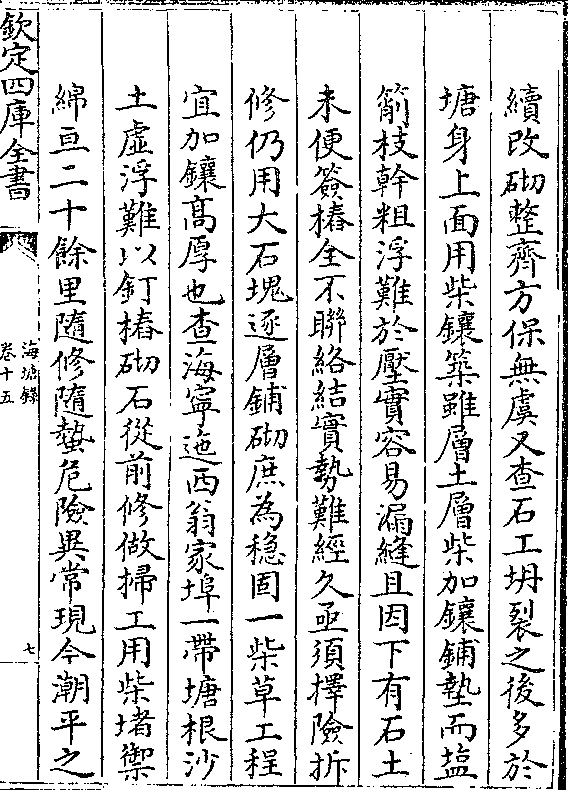 續改砌整齊方保無虞又查石工坍裂之後多於
塘身上面用柴鑲築雖層土層柴加鑲鋪墊而塩
箭枝幹粗浮難於壓實容易漏縫且因下有石土
未便簽樁全不聯絡結實勢難經久亟須擇險拆
修仍用大石塊逐層鋪砌庶為穩固一柴草工程
宜加鑲髙厚也查海寧迤西翁家埠一帶塘根沙
土虛浮難以釘樁砌石從前修做掃工用柴堵禦
綿亘二十餘里隨修隨蟄危險異常現今潮平之
欽定四庫全書
海塘錄
卷十五
七